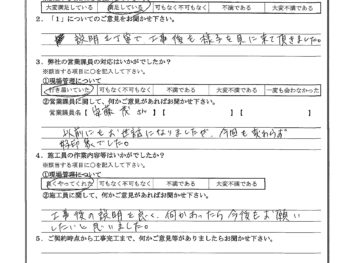 大変満足している 満足している 可もなく不可もなく 不満である 大変不満である
2．「1」についてのご意見をお聞かせ下さい。
説明も丁寧で工事後も様子を見に来て頂きました。
3．弊社の営業課員の対応はいかがでしたか？
※該当する項目に○を記入して下さい。
①現場管理について
行き届いていた 可もなく不可もなく 不満である 大変不満である 一度も会わなかった
②営業課員に関して、何かご意見があればお聞かせ下さい。
営業課員名【 安藤 茂 さん 】【 】【
以前にもお世話になりましたが、今回も変わらず
好印象でした。
4．施工員の作業内容等はいかがでしたか？
※該当する項目に○をご記入下さい。
①現場管理について
良くやってくれた 可もなく不可もなく 不満である 大変不満である
②施工員に関して、何かご意見があればお聞かせ下さい。
工事後の説明も良く、何かあったら今後もお願い
したいと思いました。
5．ご契約時点から工事完工まで、何かご意見等がありましたらお聞かせ下さい。